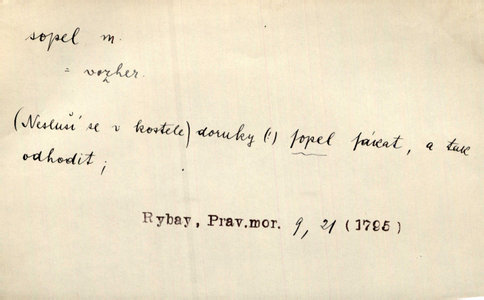 sopel m.
= vozher.
(Nesluší se v kostele) doruky (!) sopel fárat, a tak
odhodit;
Rybay, Prav.mor. 9, 21 (1795)